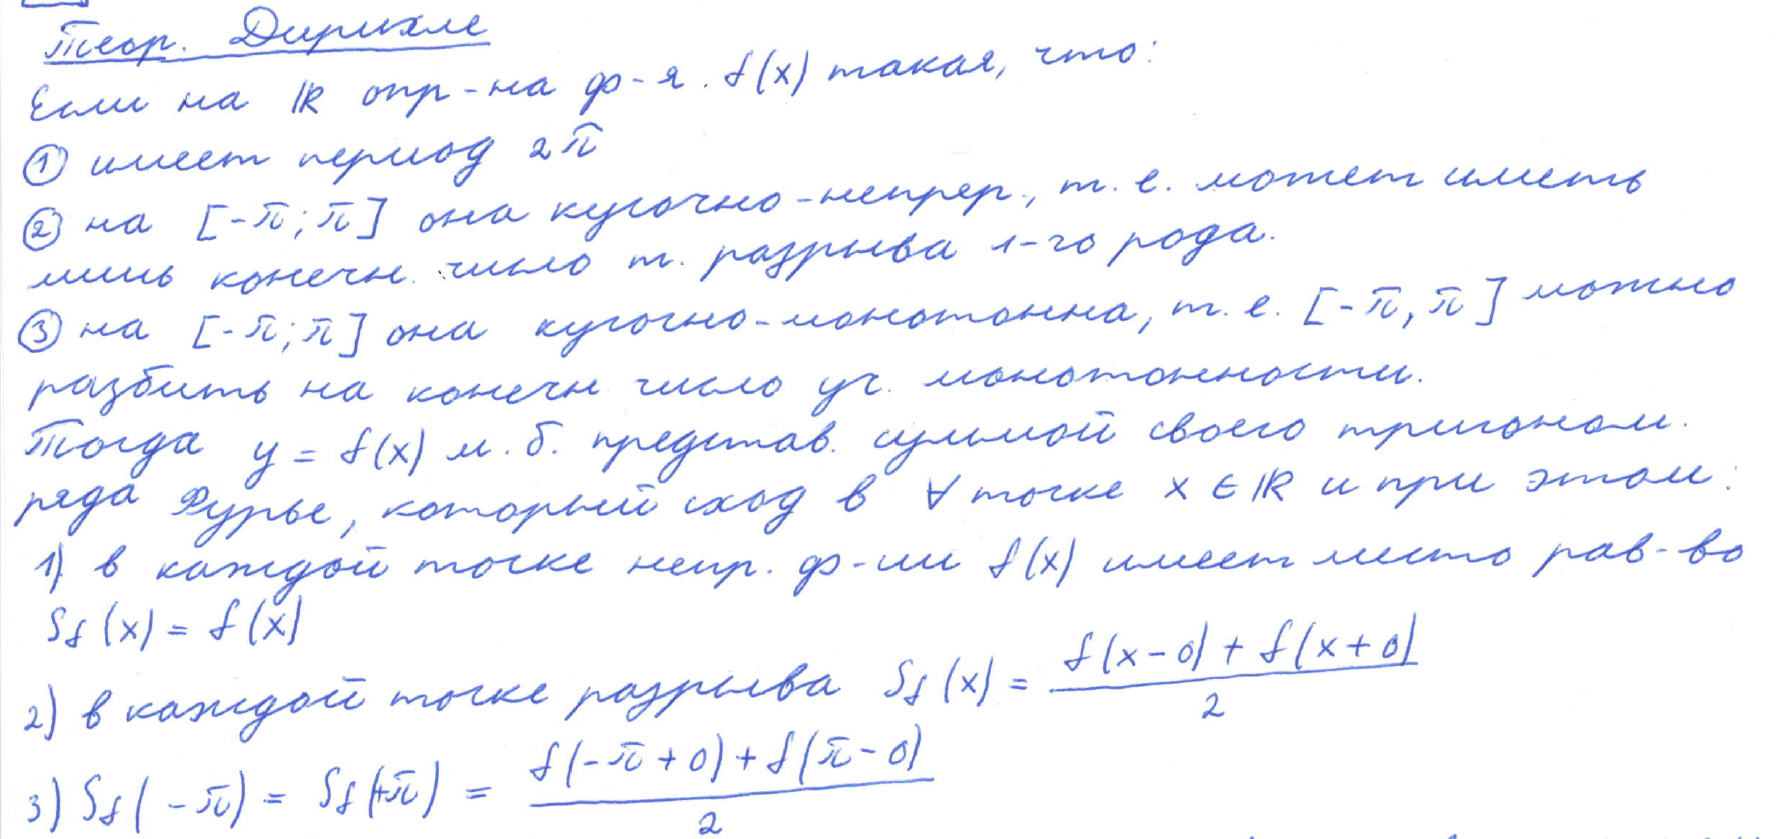 Теор. Дирихле
Если на ℝ опр-на ф-я. f(x) такая, что:
① имеет период 2π
② на [-π; π] она кусочно-непрер., т. е. может иметь
лишь конечн. число т. разрыва 1-го рода.
③ на [-π; π] она кусочно-монотонна, т. е. [-π, π] можно
разбить на конечн число уч. монотонности.
Тогда y = f(x) м. б. представ. суммой своего тригоном.
ряда Фурье, который сход в ∀ точке x ∈ ℝ и при этом:
1) в каждой точке непр. ф-ии f(x) имеет место рав-во
S_f(x) = f(x)
2) в каждой точке разрыва S_f(x) = (f(x-0) + f(x+0))/2
3) S_f(-π) = S_f(+π) = (f(-π+0) + f(π-0))/2